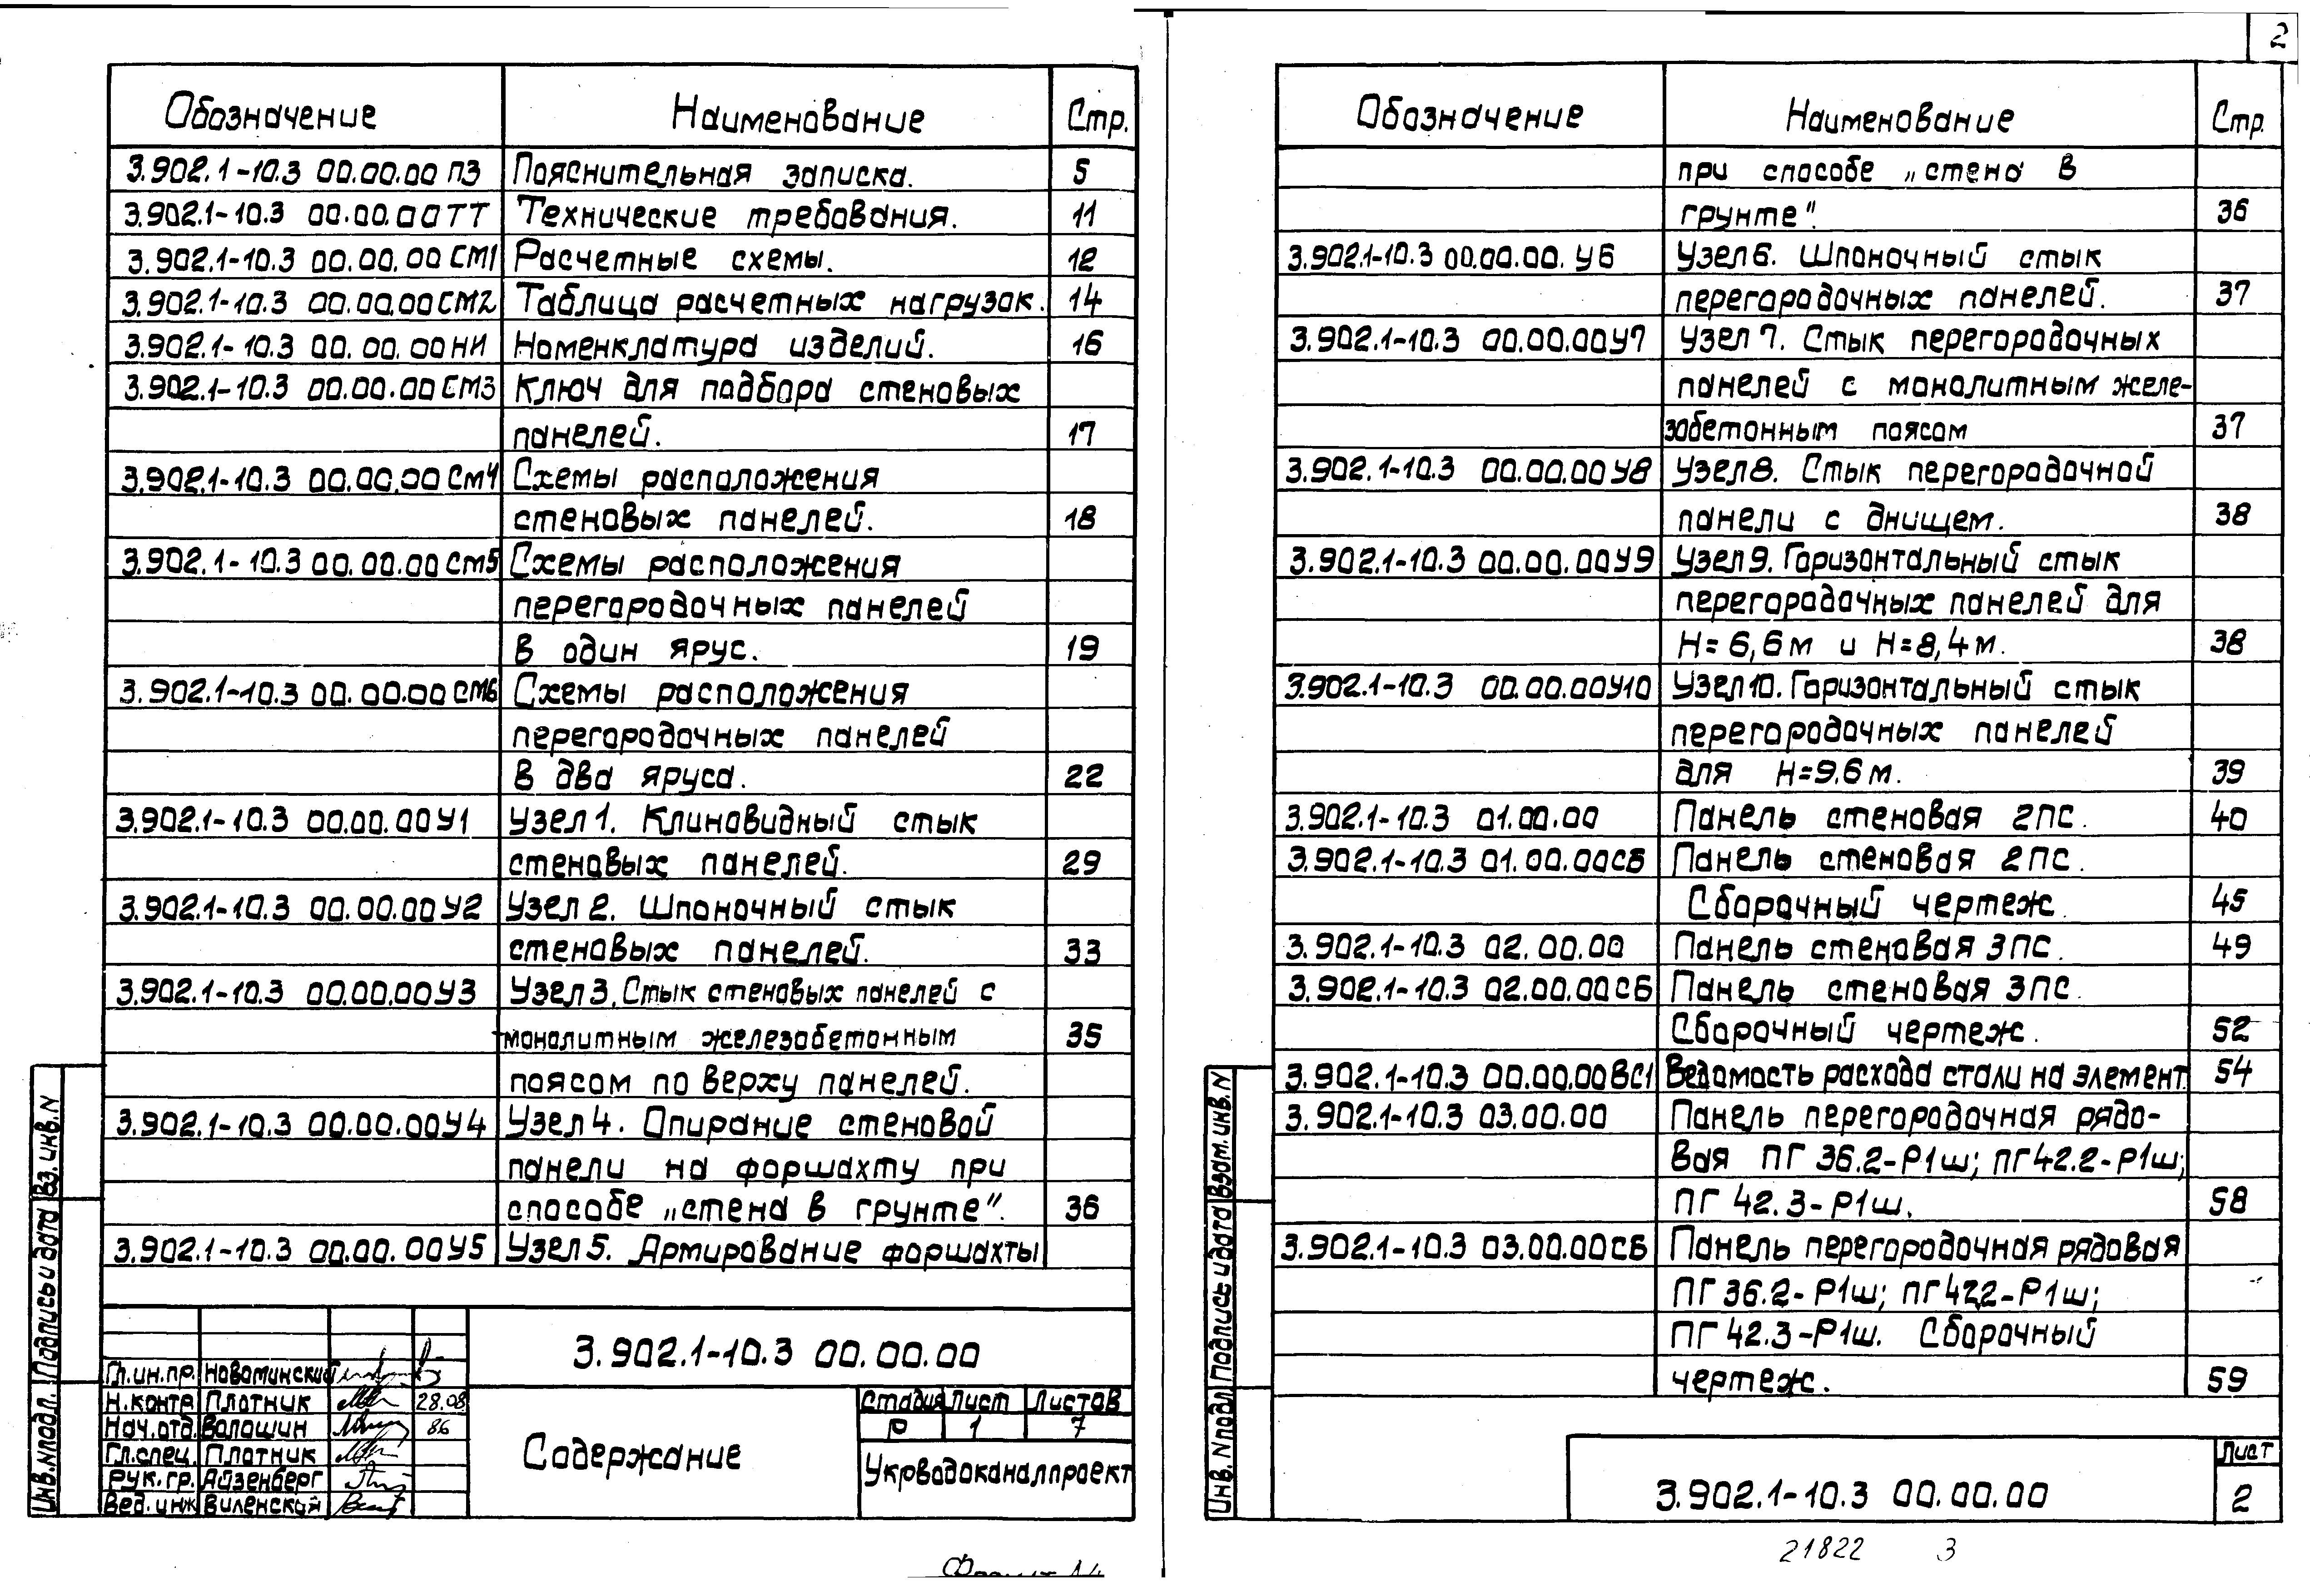 Обозначение Наименование Стр.
3.902.1-10.3 00.00.00 ПЗ Пояснительная записка. 5
3.902.1-10.3 00.00.00 ТТ Технические требования. 11
3.902.1-10.3 00.00.00 СМ1 Расчетные схемы. 12
3.902.1-10.3 00.00.00 СМ2 Таблица расчетных нагрузок. 14
3.902.1-10.3 00.00.00 НИ Номенклатура изделий. 16
3.902.1-10.3 00.00.00 СМ3 Ключ для подбора стеновых
панелей. 17
3.902.1-10.3 00.00.00 СМ4 Схемы расположения
стеновых панелей. 18
3.902.1-10.3 00.00.00 СМ5 Схемы расположения
перегородочных панелей
в один ярус. 19
3.902.1-10.3 00.00.00 СМ6 Схемы расположения
перегородочных панелей
в два яруса. 22
3.902.1-10.3 00.00.00 У1 Узел 1. Клиновидный стык
стеновых панелей. 29
3.902.1-10.3 00.00.00 У2 Узел 2. Шпоночный стык
стеновых панелей. 33
3.902.1-10.3 00.00.00 У3 Узел 3. Стык стеновых панелей с
монолитным железобетонным 35
поясом по верху панелей.
3.902.1-10.3 00.00.00 У4 Узел 4. Опирание стеновой
панели на форшахту при
способе „стена в грунте". 36
3.902.1-10.3 00.00.00 У5 Узел 5. Армирование форшахты
3.902.1-10.3 00.00.00
Гл.ин.пр. Новоминский
Н.контр Плотник 28.08
Нач.отд. Волошин 86
Гл.спец. Плотник
Рук.гр. Айзенберг
Вед.инж Виленский
Содержание
Стадия Лист Листов
Р 1 7
Укрводоканалпроект
Инв.Nподл. Подпись и дата Вз.инв.N
2
Обозначение Наименование Стр.
при способе „стена в
грунте". 36
3.902.1-10.3 00.00.00. У6 Узел 6. Шпоночный стык
перегородочных панелей. 37
3.902.1-10.3 00.00.00 У7 Узел 7. Стык перегородочных
панелей с монолитным желе-
зобетонным поясом 37
3.902.1-10.3 00.00.00 У8 Узел 8. Стык перегородочной
панели с днищем. 38
3.902.1-10.3 00.00.00 У9 Узел 9. Горизонтальный стык
перегородочных панелей для
Н=6,6м и Н=8,4м. 38
3.902.1-10.3 00.00.00 У10 Узел 10. Горизонтальный стык
перегородочных панелей
для Н=9.6м. 39
3.902.1-10.3 01.00.00 Панель стеновая 2ПС. 40
3.902.1-10.3 01.00.00 СБ Панель стеновая 2ПС.
Сборочный чертеж. 45
3.902.1-10.3 02.00.00 Панель стеновая 3ПС. 49
3.902.1-10.3 02.00.00 СБ Панель стеновая 3ПС.
Сборочный чертеж. 52
3.902.1-10.3 00.00.00 ВС1 Ведомость расхода стали на элемент. 54
3.902.1-10.3 03.00.00 Панель перегородочная рядо-
вая ПГ 36.2-Р1ш; ПГ42.2-Р1ш;
ПГ 42.3-Р1ш. 58
3.902.1-10.3 03.00.00 СБ Панель перегородочная рядовая
ПГ 36.2-Р1ш; ПГ42.2-Р1ш;
ПГ 42.3-Р1ш. Сборочный
чертеж. 59
Инв.Nподл Подпись и дата Взам.инв.N
3.902.1-10.3 00.00.00
Лист
2
21822 3